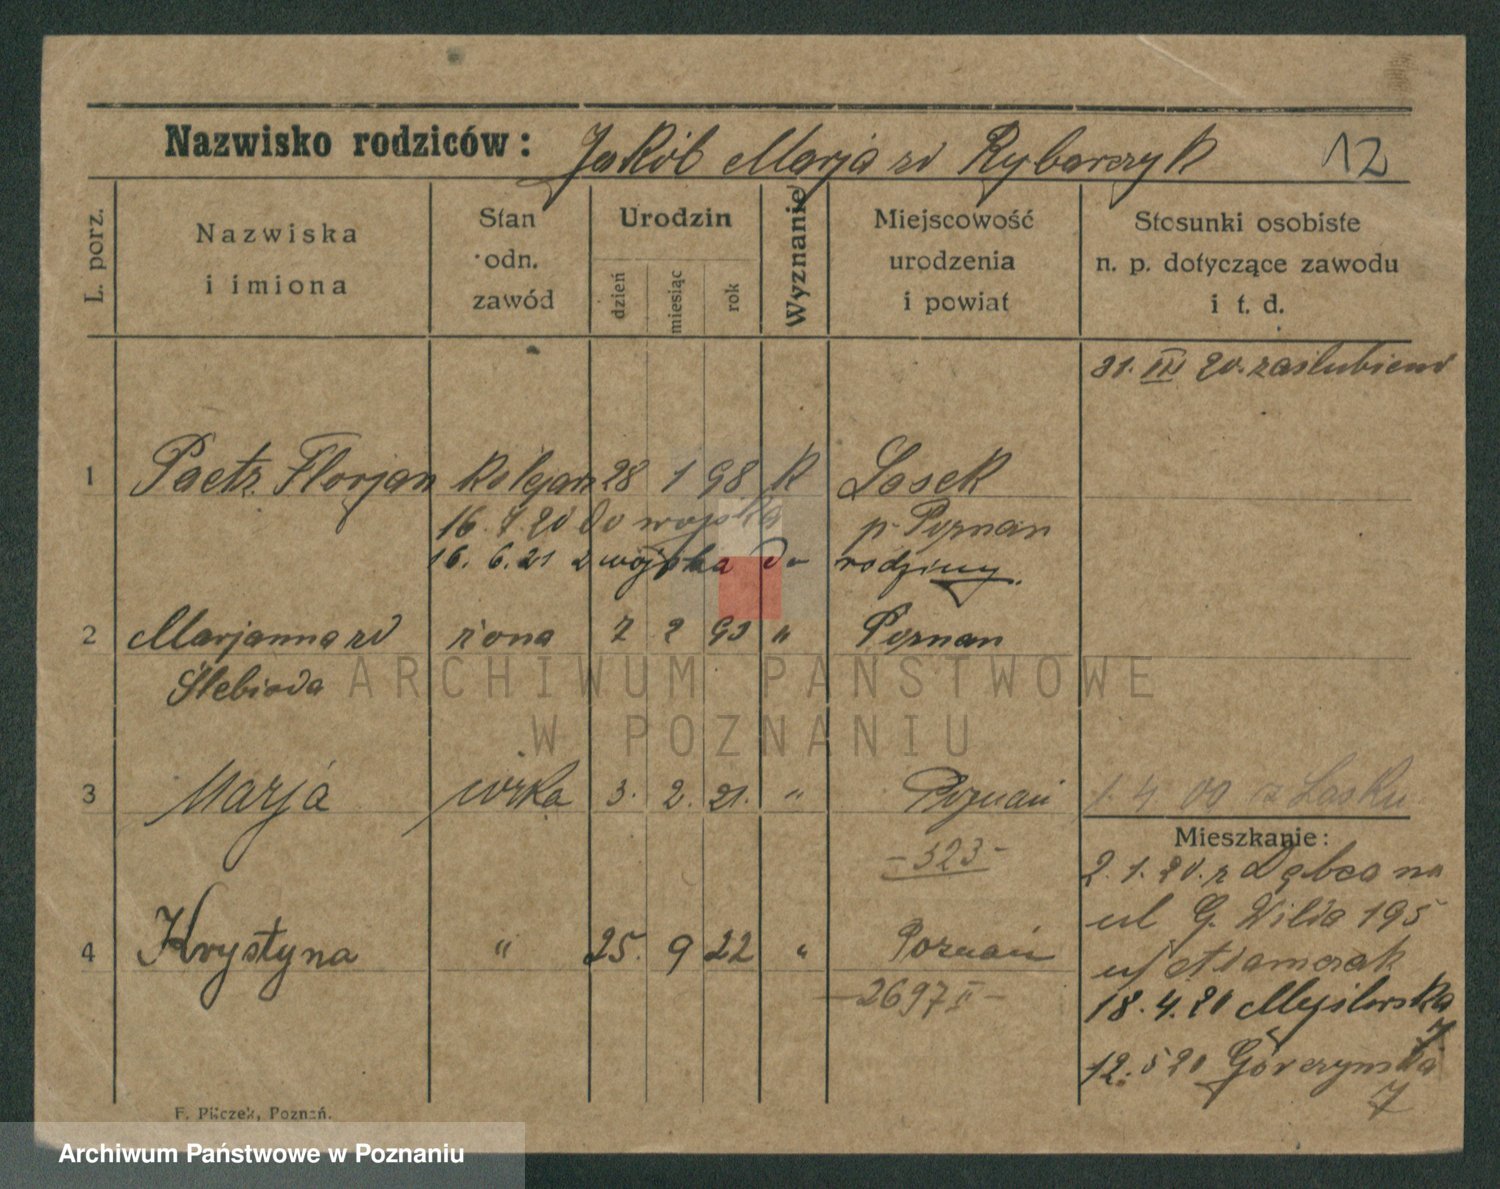 Nazwisko rodziców: Jakób Marja zd Rybarczyk 12
L. porz.
Nazwiska
i imiona
Stan
odn.
zawód
Urodzin
dzień
miesiąc
rok
Wyznanie
Miejscowość
urodzenia
i powiat
Stosunki osobiste
n. p. dotyczące zawodu
i t. d.
31. III 20. zaslubieni
1 Paetz Florjan kolejarz 28 1 98 K Lasek
16. 7. 20 do wojska p. Poznan
16. 6. 21 z wojska do rodziny.
2 Marjanna zd żona 7 2 93 " Poznan
Slebioda
3 Marja córka 3. 2. 21. " Poznań 1. 4 00 z Lasku
-323-
Mieszkanie:
2. 1. 20. z Dębca na
ul G. Wilda 195
4 Krystyna " 25. 9 22 " Poznań
-2697 II-
18. 4. 20
7
12. 5 20 Górczynska
7
F. Pilczek, Poznań.
ARCHIWUM PAŃSTWOWE
W POZNANIU
Archiwum Państwowe w Poznaniu